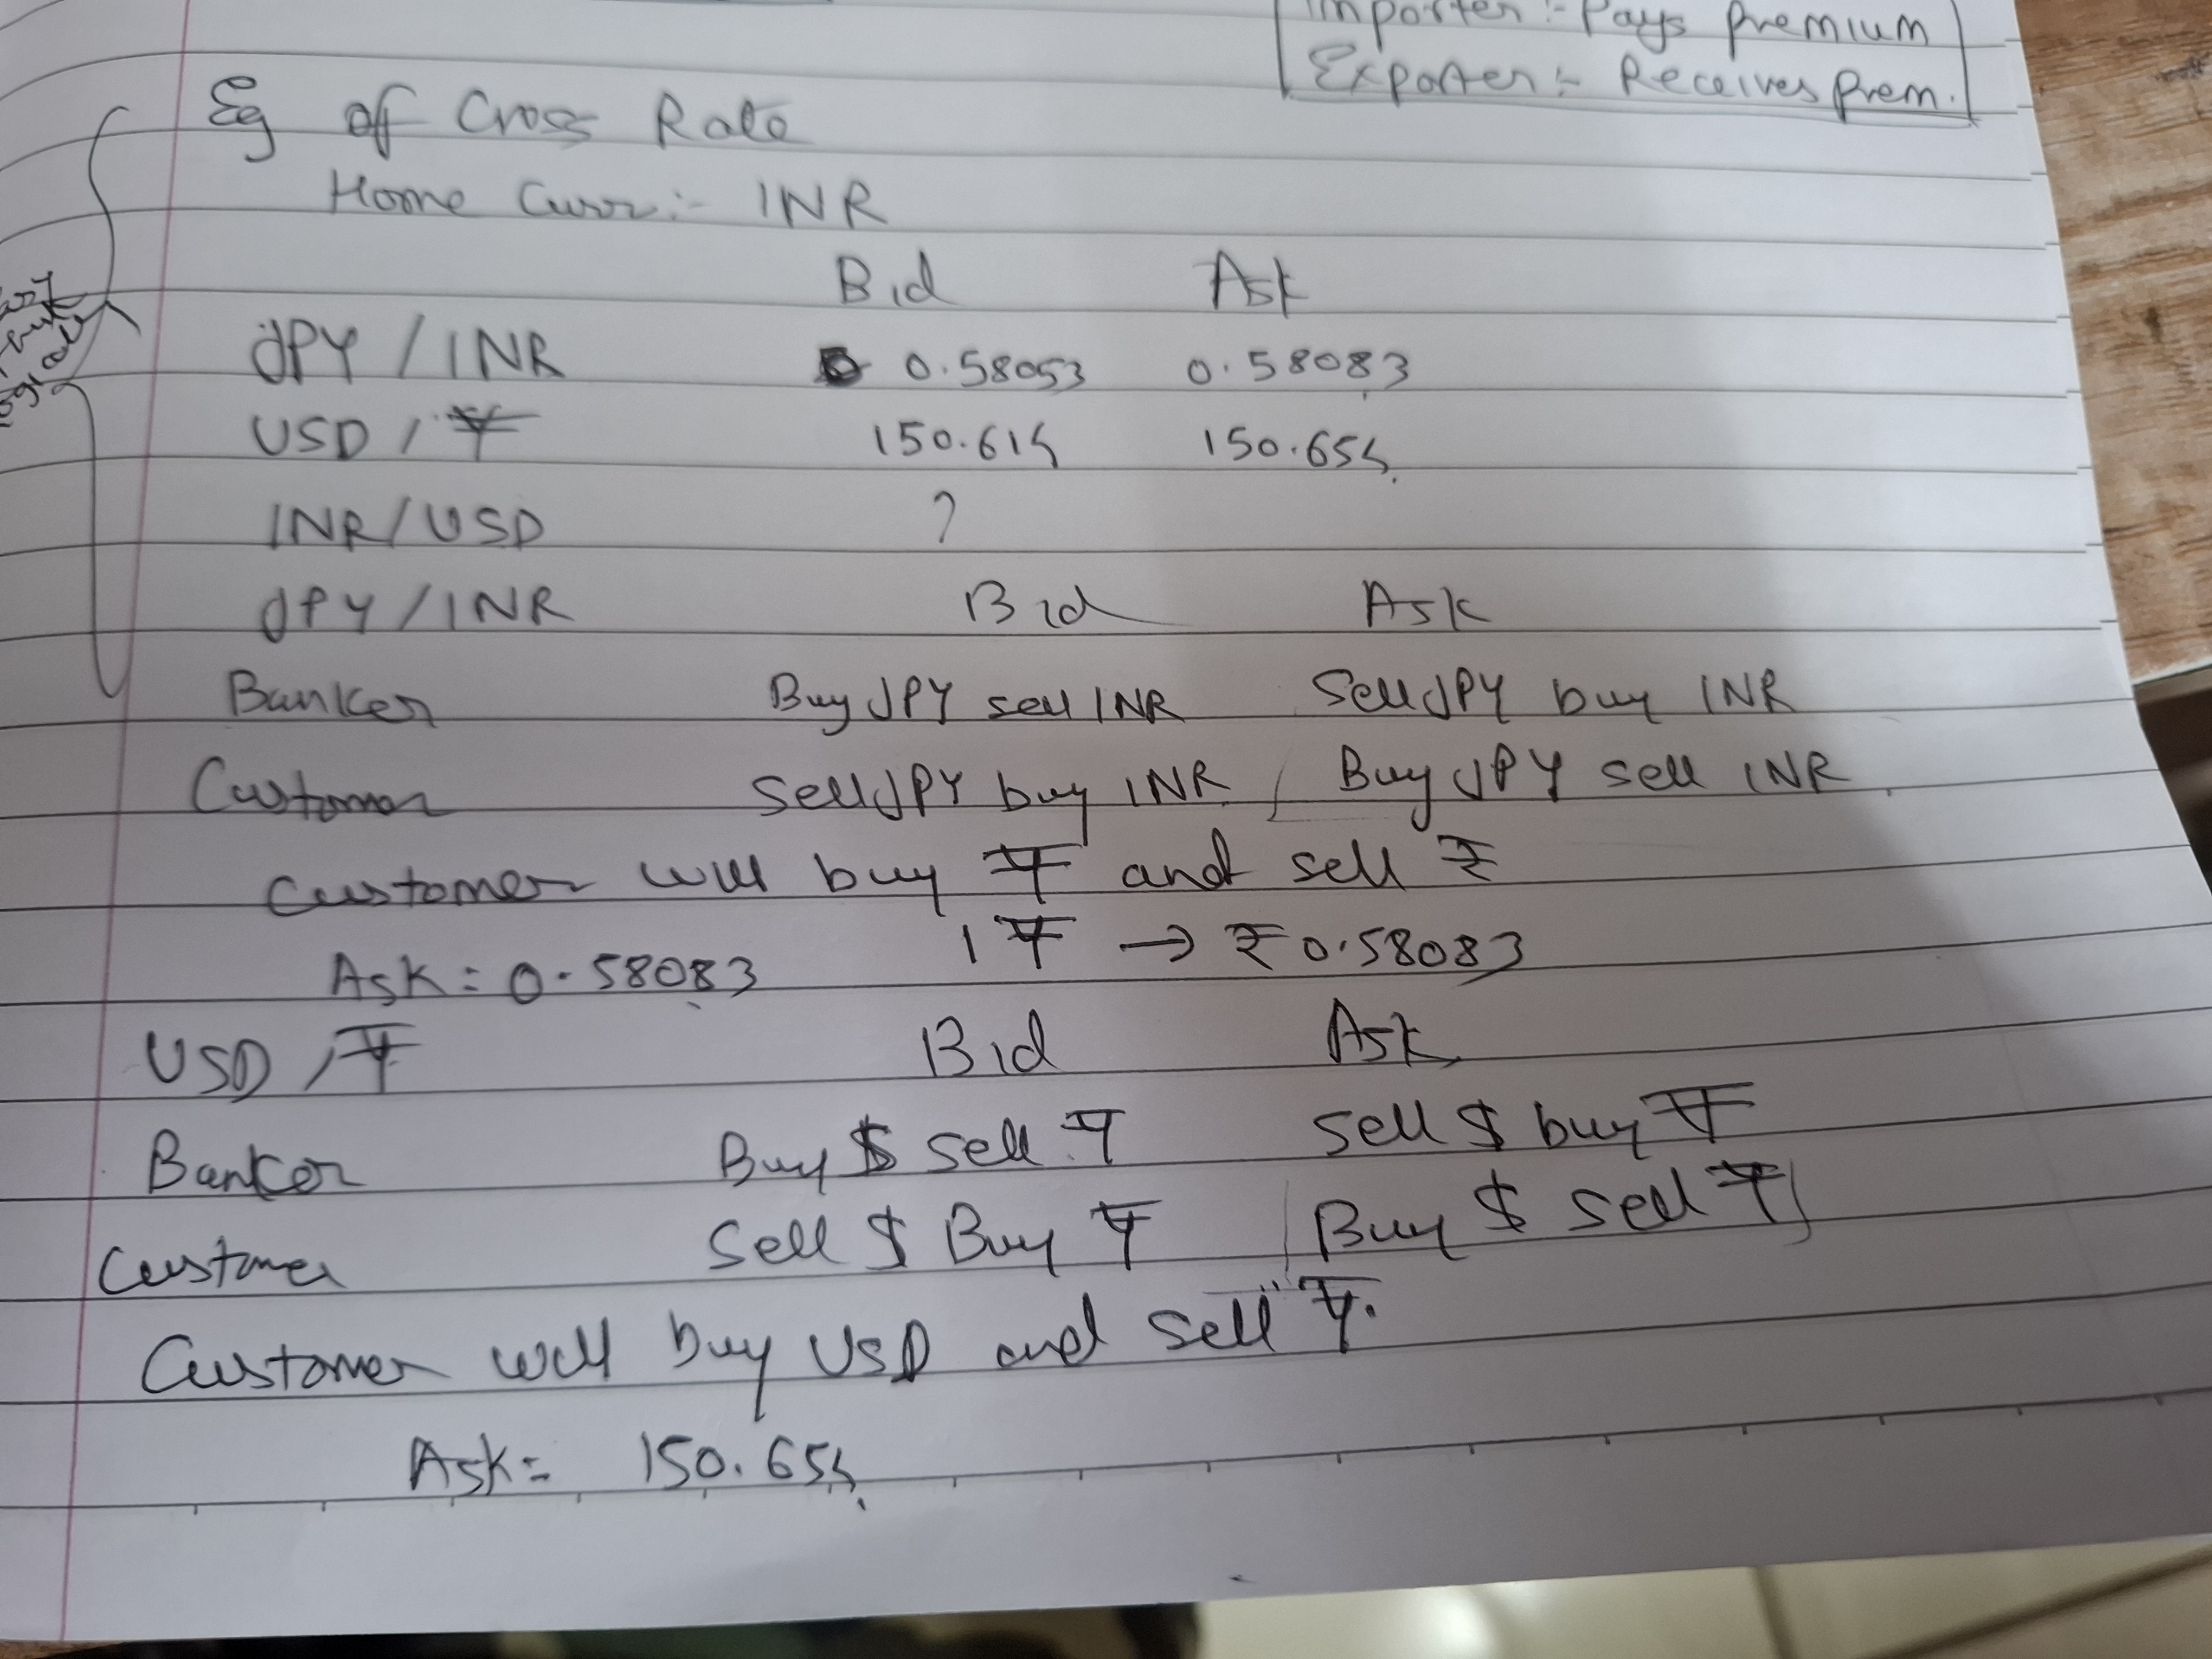 Importer :- Pays premium
Exporter :- Receives Prem.
Eg of Cross Rate
Home Curr :- INR
Bid Ask
JPY / INR 0.58053 0.58083
USD / ¥ 150.615 150.655
INR/USD ?
JPY / INR Bid Ask
Banker Buy JPY sell INR Sell JPY buy INR
Customer Sell JPY buy INR / Buy JPY sell INR
Customer will buy ¥ and sell ₹
1 ¥ → ₹ 0.58083
Ask = 0.58083
USD / ¥ Bid Ask
Banker Buy $ sell ¥ Sell $ buy ¥
Customer Sell $ Buy ¥ Buy $ sell ¥
Customer will buy USD and sell ¥.
Ask = 150.655